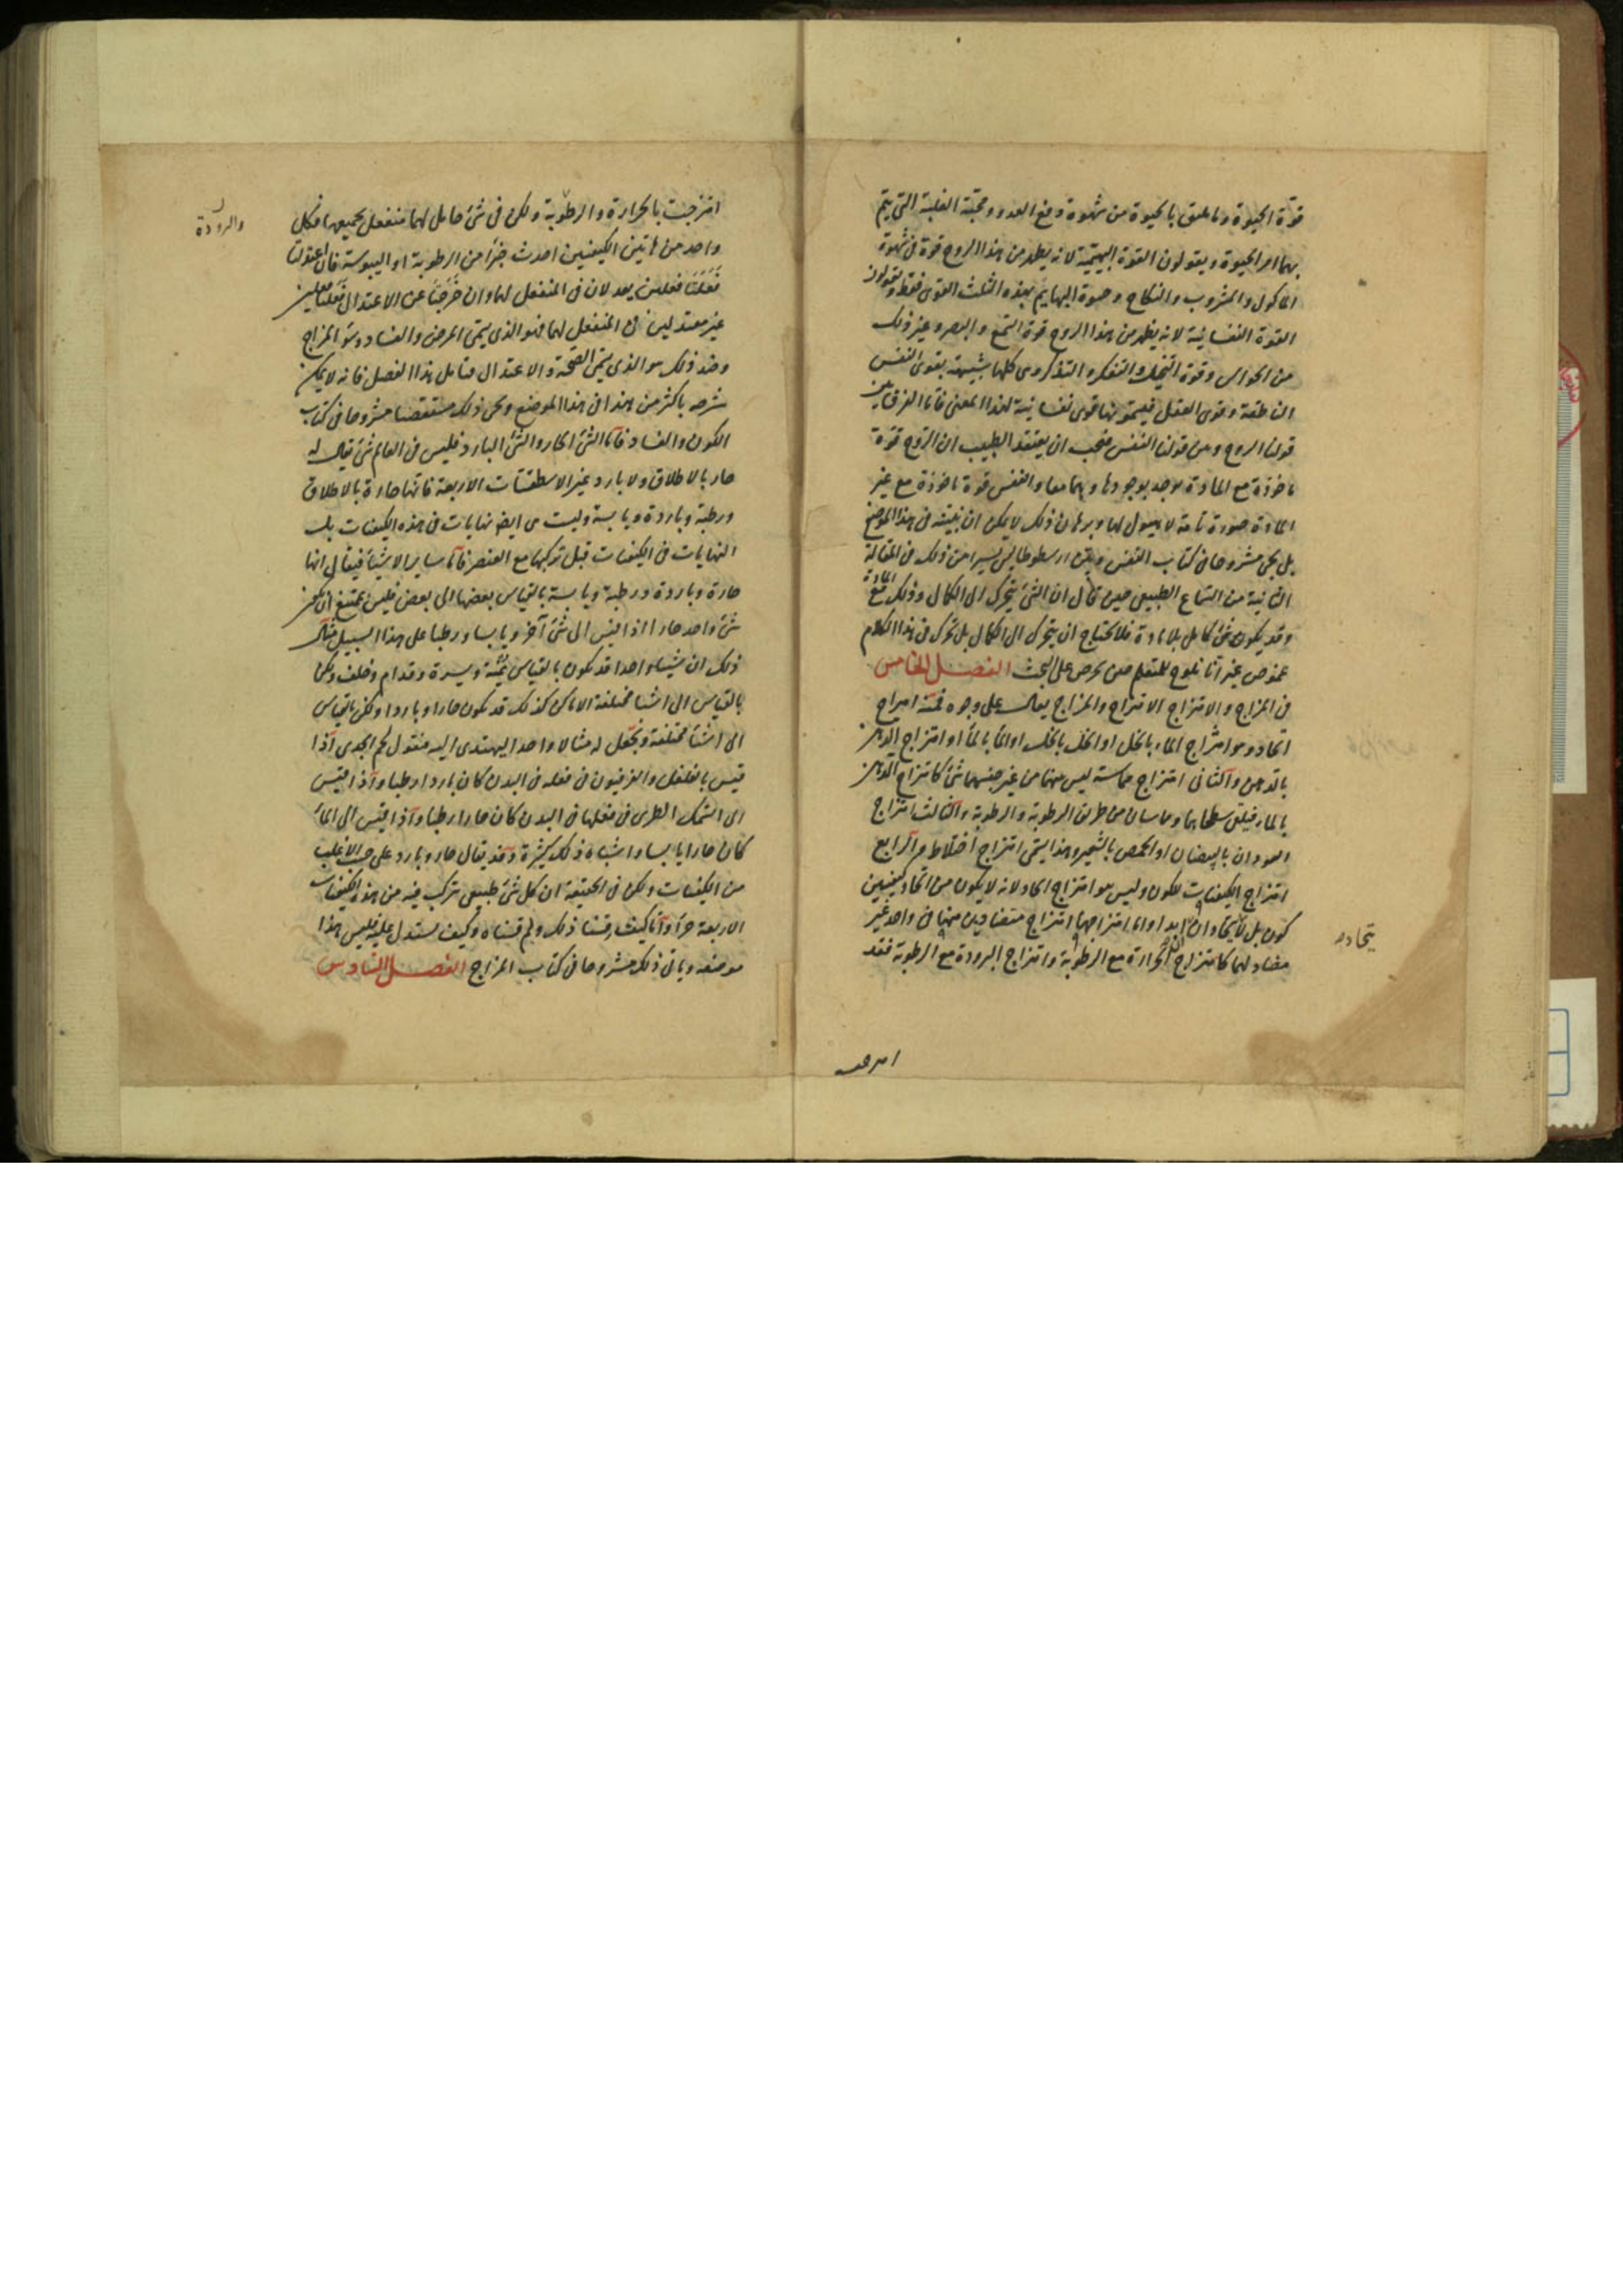 قوّة الحيوة وما علق بالحيوة من شهوة دفع العدو ومحبّة الغلبة التى يتم
بها امر الحيوة ويقولون القوة البهيمية لانه يظهر من هذا الروح قوة فى شهوة
الماكول والمشروب والنكاح وحيوة البهايم بهذه الثلث القوى فقط ويقولون
القوة النفسانية لانه يظهر من هذا الروح قوة السّمع والبصر وغير ذلك
من الحواس وقوة التخيل والتفكر والتذكر وهى كلها شبيهة بقوى النفس
الناطقة وقوى العقل فيسمونها قوى نفسانية لهذا المعنى فامّا الفرق بين
قولنا الروح ومن قولنا النفس فيجب ان يعتقد الطبيب ان الرّوح قوّة
ماخوذة مع المادة يوجد بوجودها وبهما معا والنفس قوة ماخوذة مع غير
المادة صورة تامة لا هيولى لها وبرهان ذلك لا يمكن ان نبيّنه فى هذا الموضع
بل يجى مشروحا فى كتاب النفس وبيّن ارسطوطاليس يسيرا من ذلك فى المقالة
الثانية من السّماع الطبيعى حين قال ان الشئ يتحرك الى الكمال وذلك مع المادة
وقد يكون شئ كامل بلا مادة فلا يحتاج ان يتحرك الى الكمال بل تحرك فى هذا الكلام
غموض غير انّا نلوح للمتعلم حين يحرص على البحث الفصـل الخامس
فى المزاج والامتزاج الامتزاج والمزاج يقال على وجوه خمسة امتزاج
اتحاد وهو امتزاج الماء بالخل او الخل بالخل او الماء بالماء او امتزاج الدّهن
بالدهن والثانى امتزاج مماسة ليس منهما من غير جنسهما شئ كامتزاج الدهن
بالماء فيلتقى سطحاهما ويماسان من طريق الرطوبة والرطوبة والثالث امتزاج
السودان بالبيضان او الحمص بالشعير وهذا يسمّى امتزاج اختلاط والرابع
امتزاج الكيفيات للكون وليس هو امتزاج اتحاد لانه لا يكون من اتحاد كيفيتين
كون بل لا يتحادان ابدا وانما امتزاجهما امتزاج متضادين منهما فى واحد غير
يتحادد
مضاد لهما كامتزاج الحرارة مع الرطوبة وامتزاج البرودة مع الرطوبة فقد
امتزجت
امتزجت بالحرارة والرطوبة ولكن فى شئ حامل لهما منفعل بجميعها فكل
والبرودة
واحد من هاتين الكيفيتين احدث جزأ من الرطوبة او اليبوسة فان اعتدلتا
فَعَلَتَا فعلين يعدلان فى المنفعل لهما وان خَرَجَتا عن الاعتدال فَعَلَتا فعلين
غير معتدلين فى المنفعل لهما فهو الذى يسمّى المرض والفساد وسوء المزاج
وضد ذلك هو الذى يسمّى الصّحّة والاعتدال فتامل هذا الفصل فانه لا يمكن
شرحه باكثر من هذا فى هذا الموضع ويجى ذلك مستقصا مشروحا فى كتاب
الكون والفساد فامّا الشئ الحار والشئ البارد فليس فى العالم شئ يقال له
حار بالاطلاق ولا بارد غير الاسطقسّات الاربعة فانها حارة بالاطلاق
ورطبة وباردة ويابسة وليست هى ايضا نهايات فى هذه الكيفيات بل
النهايات فى الكيفيات قبل تركبها مع العنصر فامّا ساير الاشيا فيقال انها
حارة وباردة ورطبة ويابسة بالقياس بعضها الى بعض فليس يمتنع ان يكون
شئ واحد حارا اذا قيس الى شئ آخر ويابسا ورطبا على هذا السبيل مثال
ذلك ان شيئا واحدا قد يكون بالقياس يمنة ويسرة وقدام وخلف ولكن
بالقياس الى اشيا مختلفة الاماكن كذلك قد يكون حارا وباردا ولكن بالقياس
الى اشيا مختلفة ونجعل له مثالا واحدا ليهتدى اليه فنقول لحم الجدى اذا
قيس بالفلفل والفربيون فى فعله فى البدن كان باردا رطبا واذا قيس
الى السّمك الطرى فى فعلها فى البدن كان حارا رطبا واذا قيس الى الماء
كان حارا يابسا واشباه ذلك كثيرة وقد يقال حار وبارد على حسب الاغلب
من الكيفيات ولكن فى الحقيقة ان كل شئ طبيعى تركب فيه من هذه الكيفيات
الاربعة جزأ وامّا كيف قسنا ذلك ولم قسناه وكيف يستدل عليه فليس هذا
موضعه وياتى ذلك مشروحا فى كتاب المزاج الفصـل السّادس